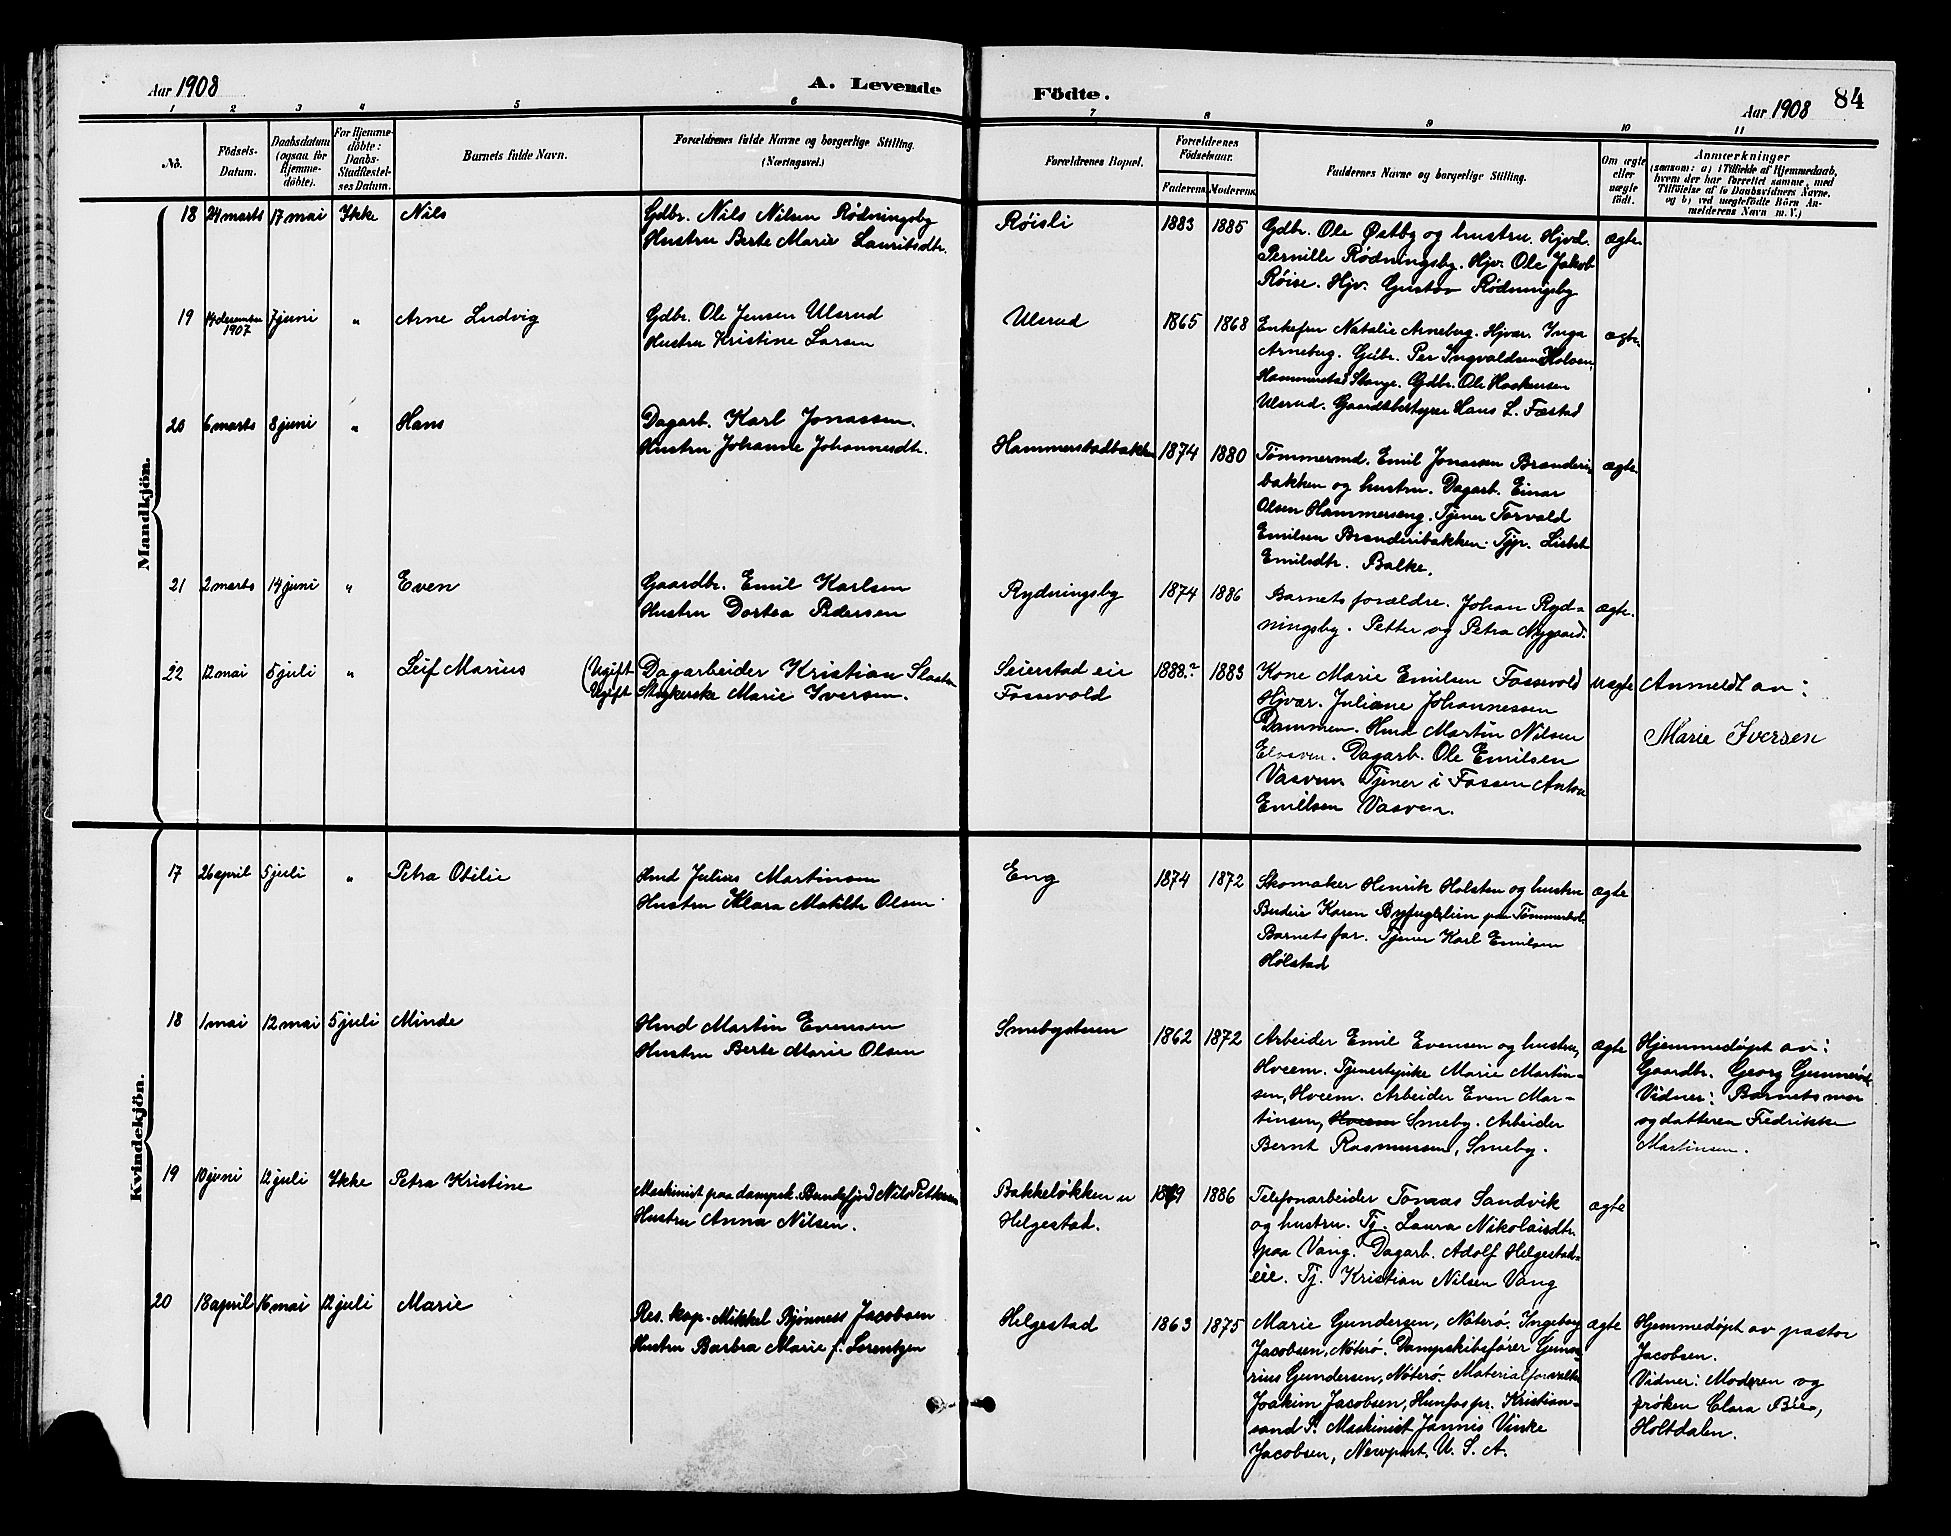 Aar 1908
A. Levende
Födte.
Aar 1908
84
1 2 3 4 5 6 7 8 9 10 11
No.
Födsels-
Datum.
Daabsdatum
(ogsaa for
Hjemme-
döbte).
For Hjemme-
döbte:
Daabs-
Stadfæstel-
ses Datum.
Barnets fulde Navn.
Forældrenes fulde Navne og borgerlige Stilling.
(Næringsvei.)
Forældrenes Bopæl.
Forældrenes
Födselsaar.
Faderens. Moderens.
Faddernes Navne og borgerlige Stilling.
Om ægte
eller
uægte
født.
Anmærkninger
(saasom: a) i Tilfælde af Hjemmedaab,
hvem der har forrettet samme, med
Tilføielse af to Daabsvidners Navne,
og b) ved uegtefödte Börn An-
melderens Navn m. V.)
Mandkjön.
18 24 marts 17 mai Ikke Nils
Gdbr. Nils Nilsen Rødningsby
Hustru Berte Marie Lauritsdtr.
Røisli 1883 1885
Gdbr. Ole Østby og hustru. Hjvd.
Pernille Rødningsby. Hjv. Ole Jakob
Røise. Hjv. Gustav Rødningsby
ægte
19 14 december 1907 7 juni " Arne Ludvig
Gdbr. Ole Jensen Ulsrud
Hustru Kristine Larsen
Ulsrud 1865 1868
Enkefru Natalie Arneberg. Hjvær. Inga
Arneberg. Gdbr. Per Ingvaldsen Holsen
Hammerstad Stange. Gdbr. Ole Haakensen
Ulsrud. Gaardsbestyrer Hans L. Fæstad
ægte
20 6 marts 8 juni " Hans
Dagarb. Karl Jonassen.
Hustru Johanne Johannesdtr.
Hammerstadbakken 1874 1880
Tømmermd. Emil Jonassen Brænderi-
bakken og hustru. Dagarb. Einar
Olsen Hammerseng. Tjener Torvald
Emilsen Brænderibakken. Tjp. Lisbet
Emilsdtr. Balke.
ægte
21 2 marts 14 juni " Even
Gaardbr. Emil Karlsen
Hustru Dortea Pedersen
Rydningsby 1874 1886
Barnets forældre. Johan Ryd-
ningsby. Petter og Petra Nygaard.
ægte.
22 12 mai 5 juli " Leif Marius
(Ugift Dagarbeider Kristian Slaaten
Ugift Strykerske Marie Iversen.
Seierstad eie
Fossevold
1888? 1883
Kone Marie Emilsen Fossevold
Hjvær. Juliane Johannessen
Dammen. Hmd Martin Nilsen
Dagarb. Ole Emilsen
Vasveen Tjener i Fossen Anton
Emilsen Vasveen.
uægte
Anmeldt av:
Marie Iversen
Kvindekjön.
17 26 april 5 juli " Petra Otilie
Hmd Julius Martinsen
Hustru Klara Matilde Olsen
Eng 1874 1872
Skomaker Henrik Holsten og hustru
Budeie Karen Byfuglien paa Tømmerhol.
Barnets far. Tjener Karl Emilsen
Hølstad
ægte
18 1 mai 12 mai 5 juli Minda
Hmd Martin Evensen
Hustru Berte Marie Olsen
Smebysteen 1862 1872
Arbeider Emil Evensen og hustru,
Hveem. Tjenestepike Marie Martin-
sen, Hveem. Arbeider Even Mar-
tinsen, Hveem Smeby. Arbeider
Bernt Rasmussen, Smeby.
ægte
Hjemmedøpt av:
Gaardbr. Georg Gunnerød
Vidner: Barnets mor
og datteren Fredrikke
Martinsen.
19 10 juni 12 juli Ikke Petra Kristine
Maskinist paa dampsk. Bundefjord Nils Pettersen
Hustru Anna Nilsen.
Bakkeløkken u
Helgestad.
1879 1886
Telefonarbeider Tomas Sandvik
og hustru. Tj. Laura Nikolaisdtr.
paa Vang. Dagarb. Adolf Helgestad-
eie. Tj. Kristian Nilsen Vang
ægte
20 18 april 16 mai 12 juli Marie
Res. kap. Mikkel Bjønness Jacobsen
Hustru Barbra Marie f. Lorentzen
Helgestad 1863 1875
Marie Gundersen, Nøterø. Ingeborg
Jacobsen, Nøterø. Dampskibsfører Guna-
rius Gundersen, Nøterø. Materialforvalter
Joakim Jacobsen, Hunfos pr. Kristian-
sand S. Maskinist Jannis Vinke
Jacobsen, Newport. U. S. A.
ægte
Hjemmedøpt av pastor
Jacobsen.
Vidner: Moderen og
frøken Clara Bie,
Holtdalen.